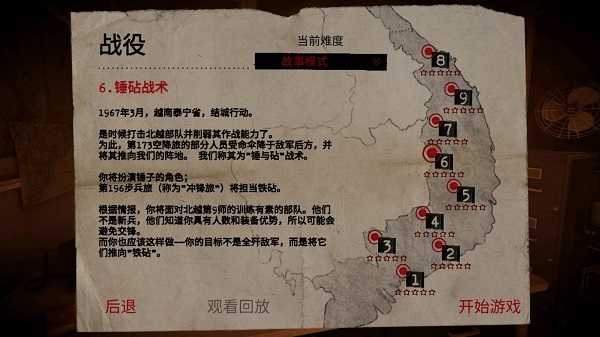 战役
当前难度
故事模式
6.锤砧战术
1967年3月，越南泰宁省，结城行动。
是时候打击北越部队并削弱其作战能力了。
为此，第173空降旅的部分人员受命伞降于敌军后方，并
将其推向我们的阵地。 我们称其为“锤与砧”战术。
你将扮演锤子的角色；
第196步兵旅（称为“冲锋旅”）将担当铁砧。
根据情报，你将面对北越第9师的训练有素的部队。他们
不是新兵，他们知道你具有人数和装备优势，所以可能会
避免交锋。
而你也应该这样做——你的目标不是全歼敌军，而是将它
们推向“铁砧”。
8
9
7
6
5
4
3
2
1
后退
观看回放
开始游戏